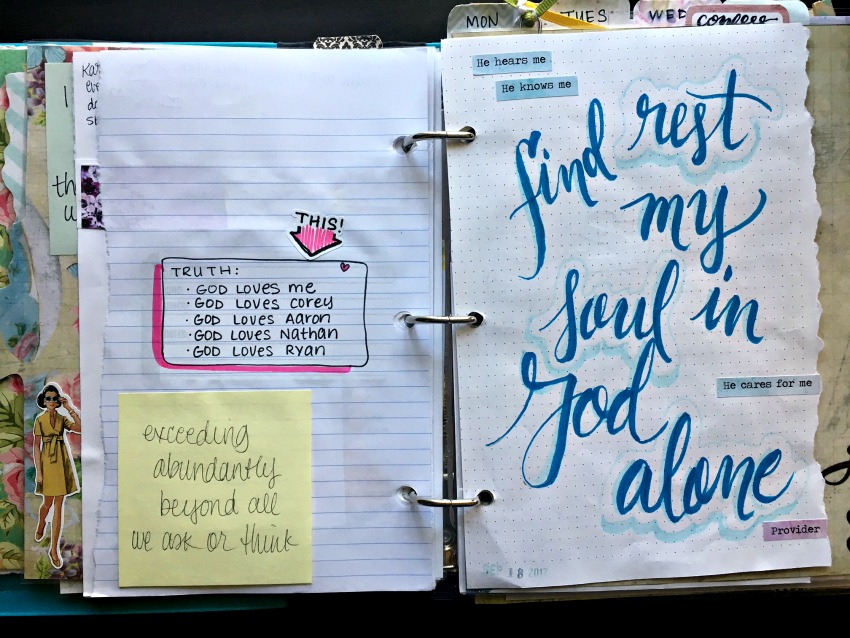 MON
TUES
WED
confess
THIS!
TRUTH:
· GOD LOVES me
· GOD LOVES Corey
· GOD LOVES Aaron
· GOD LOVES Nathan
· GOD LOVES Ryan
exceeding
abundantly
beyond all
we ask or think
He hears me
He knows me
find rest
my
soul in
God
alone
He cares for me
Provider
FEB 18 2017